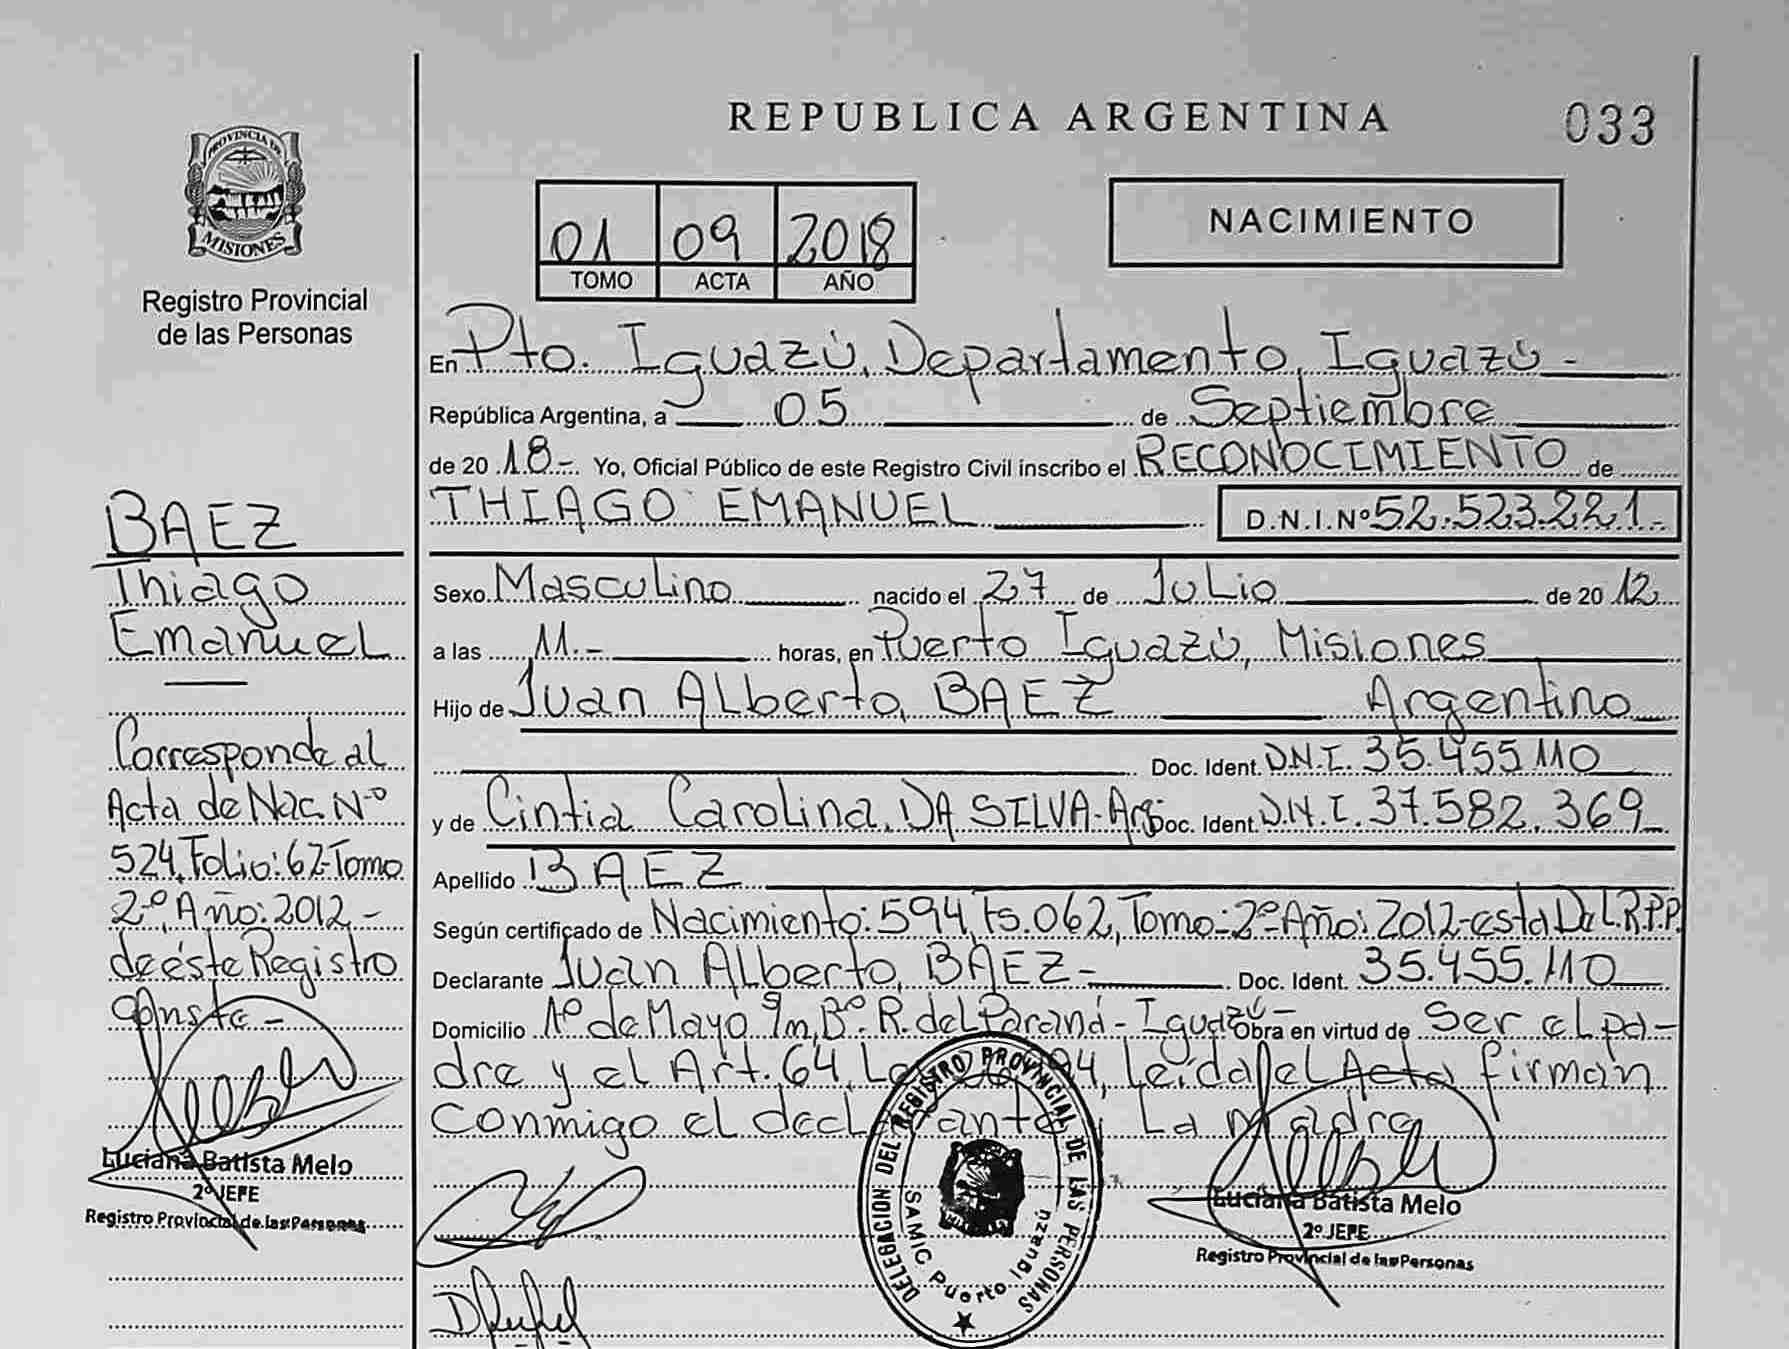 REPUBLICA ARGENTINA
033
PROVINCIA DE
MISIONES
Registro Provincial
de las Personas
01 09 2018
TOMO ACTA AÑO
NACIMIENTO
En Pto. Iguazú, Departamento, Iguazú -
República Argentina, a 05 de Septiembre
de 2018.- Yo, Oficial Público de este Registro Civil inscribo el RECONOCIMIENTO de
THIAGO EMANUEL D.N.I.Nº 52.523.221.-
Sexo Masculino nacido el 27 de Julio de 2012
a las 11.- horas, en Puerto Iguazú, Misiones
Hijo de Juan Alberto, BAEZ Argentino
Doc. Ident. D.N.I. 35.455.110
y de Cintia Carolina, DA SILVA-Arg Doc. Ident. D.N.I. 37.582.369
Apellido BAEZ
Según certificado de Nacimiento: 594, Fs. 062, Tomo: 2º Año: 2012-esta Del. R.P.P.
Declarante Juan Alberto, BAEZ- Doc. Ident. 35.455.110
Domicilio 1º de Mayo Bº. R. del Paraná - Iguazú- Obra en virtud de Ser el pa-
dre y el Art. 64, Leída el Acta firman
conmigo el La madre
BAEZ
Thiago
Emanuel
Corresponde al
Acta de Nac. Nº
524, Folio: 62-Tomo
2º, Año: 2012-
de éste Registro
Conste-
Luciana Batista Melo
2º JEFE
Registro Provincial de las Personas
DELEGACION DEL REGISTRO PROVINCIAL DE LAS PERSONAS
SAMIC Puerto Iguazú
Luciana Batista Melo
2º JEFE
Registro Provincial de las Personas